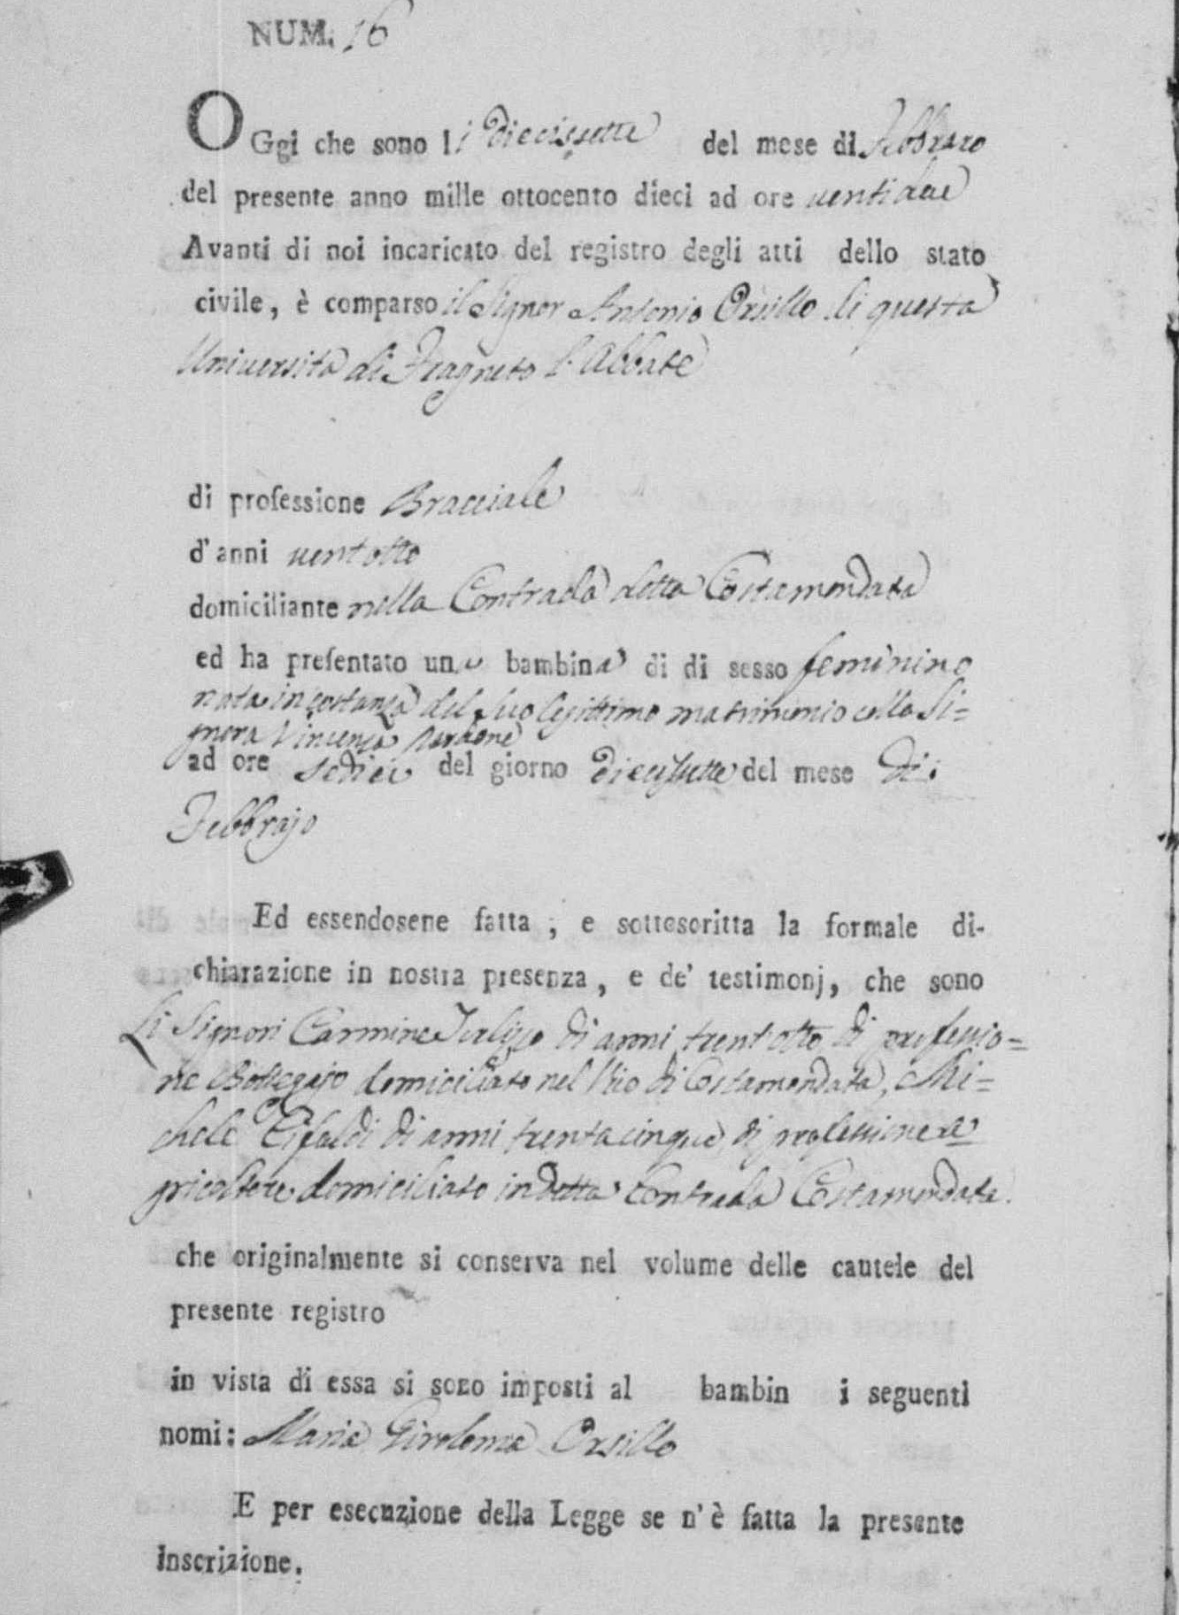 NUM. 16
OGgi che sono li diecissette del mese di Febbraro
del presente anno mille ottocento dieci ad ore ventidue
Avanti di noi incaricato del registro degli atti dello stato
civile, è comparso il Signor Antonio Orsillo di questa
Università di Fragneto l'Abbate
di professione Bracciale
d'anni ventotto
domiciliante nella Contrada detta Costamondata
ed ha presentato una bambina di di sesso feminino
nata in costanza del suo legittimo matrimonio colla Si=
gnora Vincenza
ad ore sedici del giorno diecissette del mese di
Febbrajo
Ed essendosene fatta, e sottoscritta la formale di-
chiarazione in nostra presenza, e de' testimonj, che sono
Li Signori Carmine di anni trent'otto di professio=
ne Bottegajo domiciliato nel Vico di Costamondata, Mi=
chele Tifaldi di anni trentacinque di professione a
gricoltore domiciliato in detta Contrada Costamondata.
che originalmente si conserva nel volume delle cautele del
presente registro
in vista di essa si sono imposti al bambin i seguenti
nomi: Maria Girolama Orsillo
E per esecuzione della Legge se n'è fatta la presente
Inscrizione.